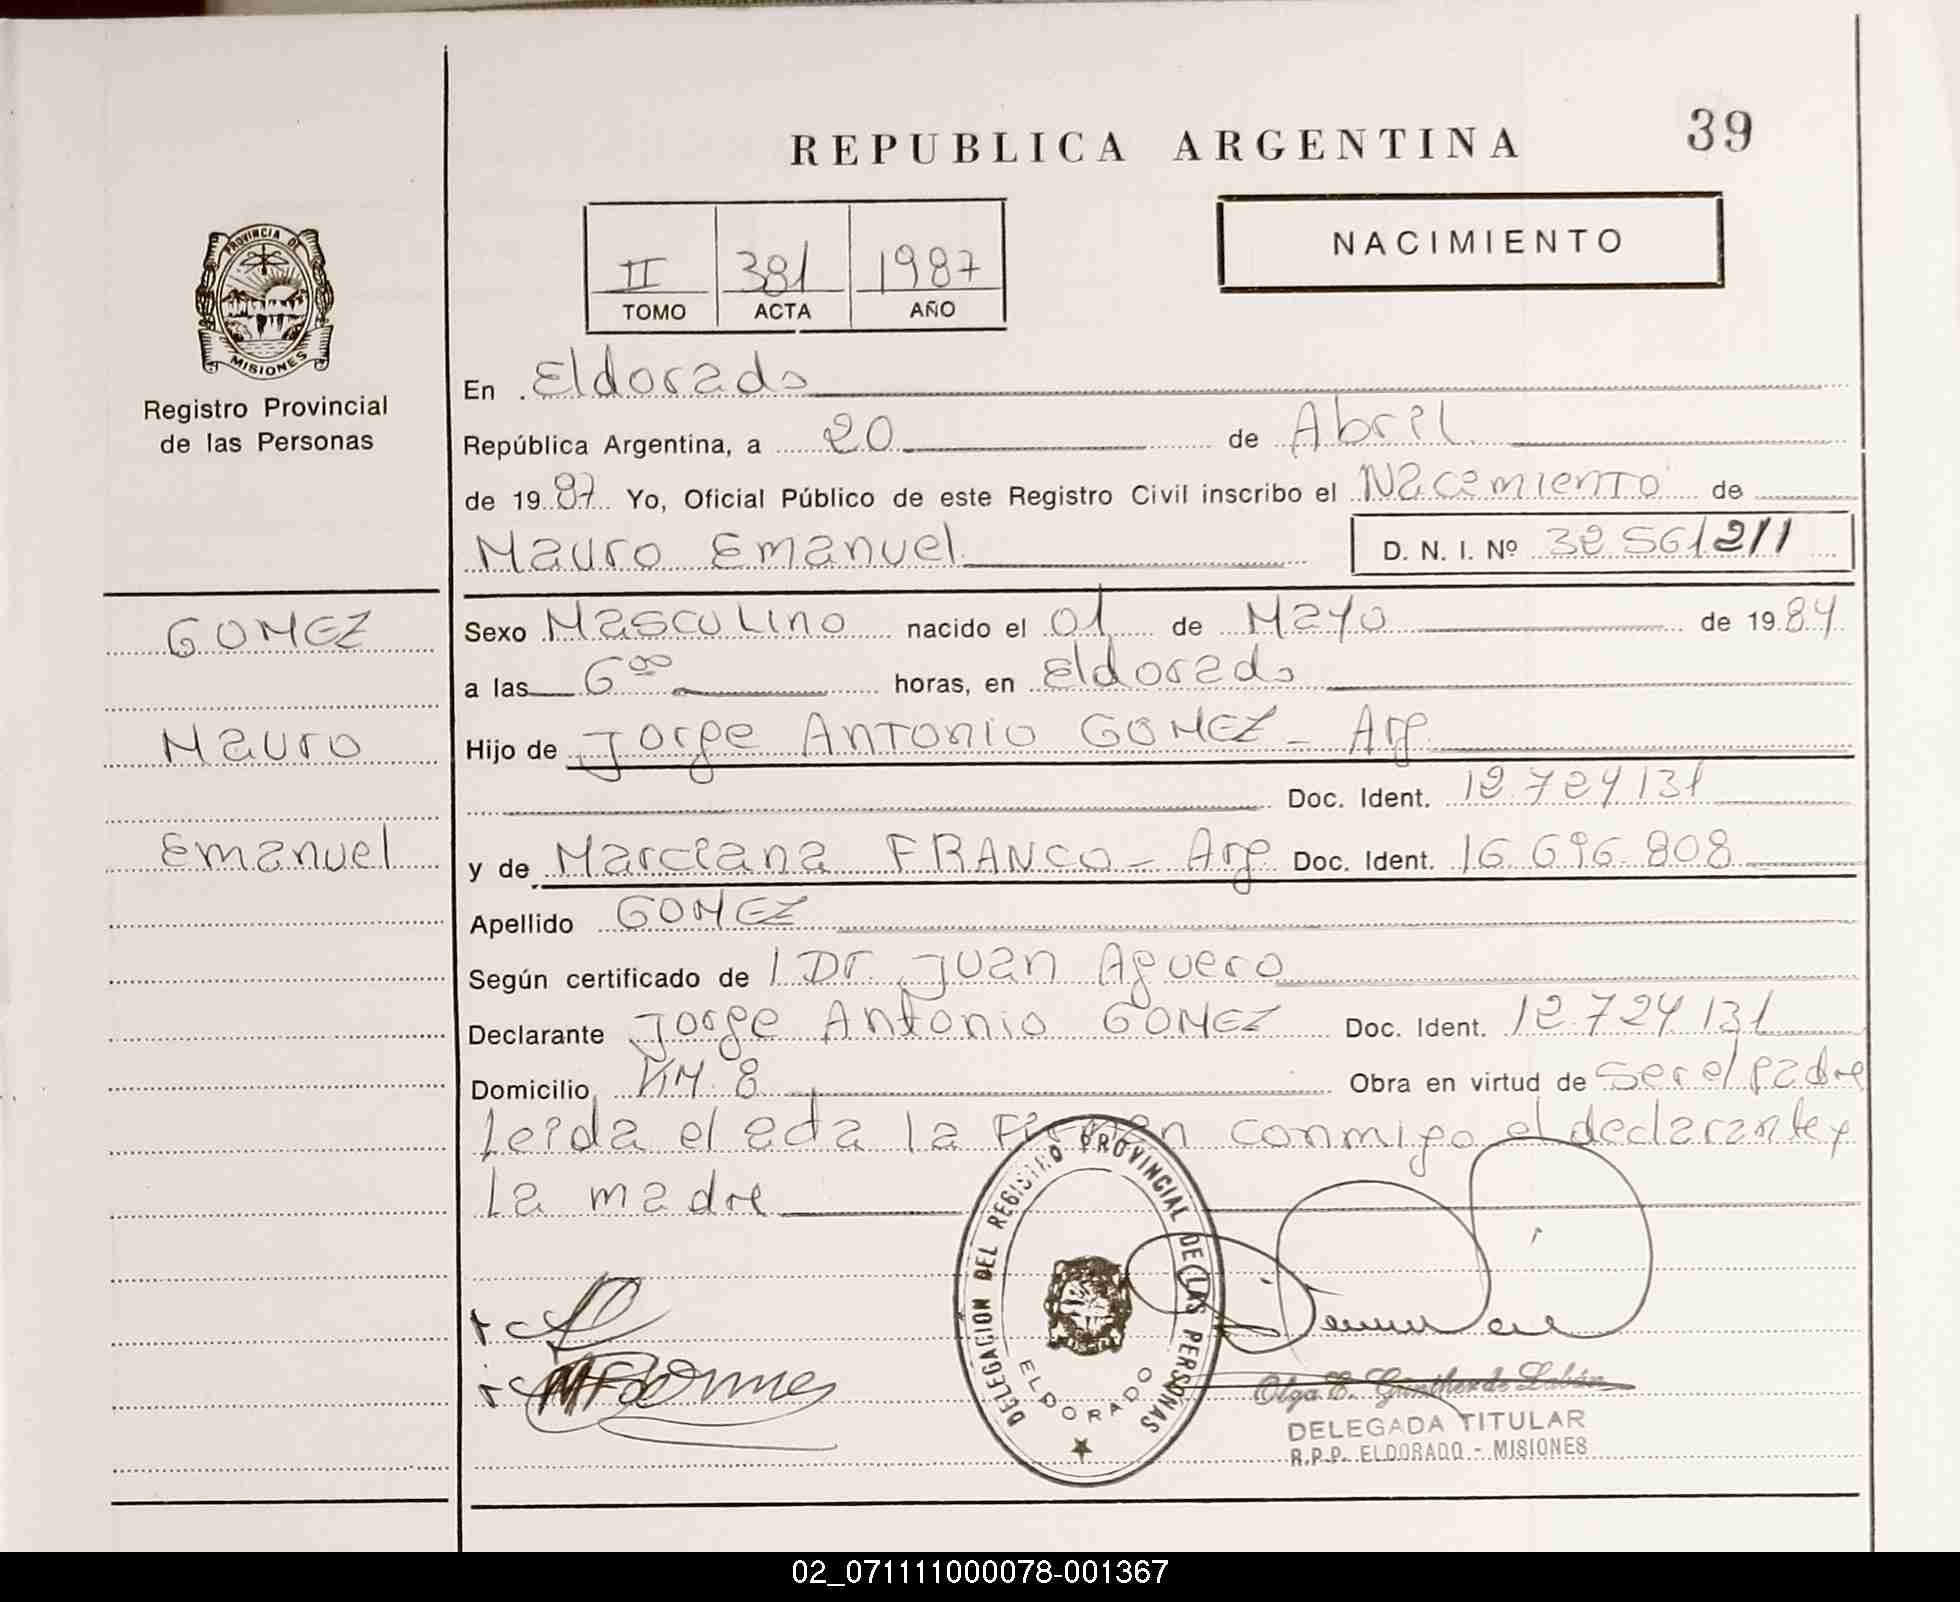 REPUBLICA ARGENTINA
39
PROVINCIA DE
MISIONES
Registro Provincial
de las Personas
II 381 1987
TOMO ACTA AÑO
NACIMIENTO
En Eldorado
República Argentina, a 20 de Abril
de 1987 Yo, Oficial Público de este Registro Civil inscribo el Nacimiento de
Mauro Emanuel D. N. I. Nº 32 561 211
GOMEZ
Mauro
Emanuel
Sexo Masculino nacido el 01 de Mayo de 1984
a las 6 00 horas, en Eldorado
Hijo de Jorge Antonio GOMEZ - Arg
Doc. Ident. 12.724 131
y de Marciana FRANCO - Arg Doc. Ident. 16 696 808
Apellido GOMEZ
Según certificado de Dr. Juan Aguero
Declarante Jorge Antonio GOMEZ Doc. Ident. 12.724 131
Domicilio KM 8 Obra en virtud de ser el padre
Leida el acta la Firman conmigo el declarante y
La madre
DELEGACION DEL REGISTRO PROVINCIAL DE LAS PERSONAS
ELDORADO
Olga E. Gunther de Labán
DELEGADA TITULAR
R.P.P. ELDORADO - MISIONES
02_071111000078-001367